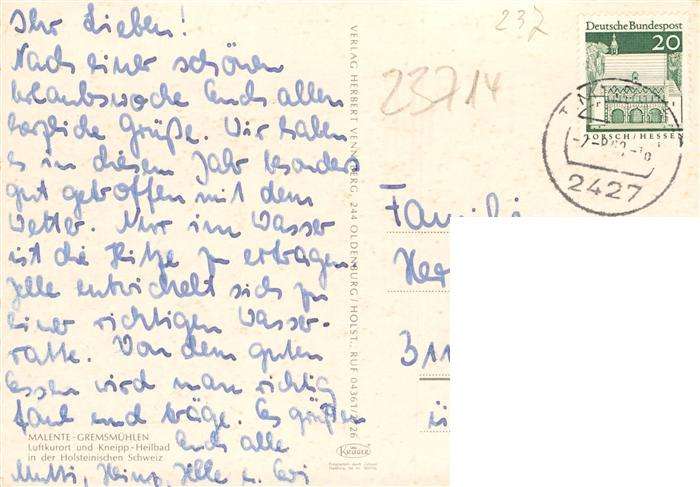 Ihr Lieben!
Nach einer schönen
Urlaubswoche Euch allen
herzliche Grüße. Wir haben
es in diesem Jahr besonders
gut getroffen mit dem
Wetter. Nur im Wasser
ist die Hitze zu ertragen.
Jelle entwickelt sich zu
einer richtigen Wasser-
ratte. Von dem guten
Essen wird man richtig
faul und träge. Es grüßen
Euch alle
Mutti, Heinz, Jelle u.
MALENTE-GREMSMÜHLEN
Luftkurort und Kneipp-Heilbad
in der Holsteinischen Schweiz
VERLAG HERBERT VENNEBERG, 244 OLDENBURG/HOLST., RUF 04361/
Krüger
237
23714
Deutsche Bundespost
20
LORSCH/HESSEN
2427
Familie
Her
311